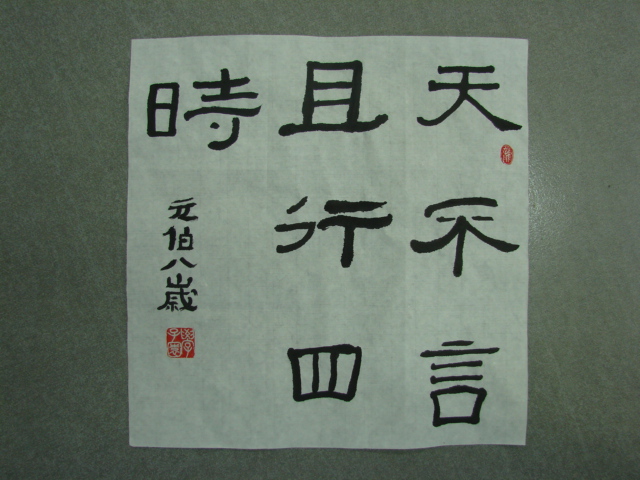 天不言
且行四
時
元伯八歲